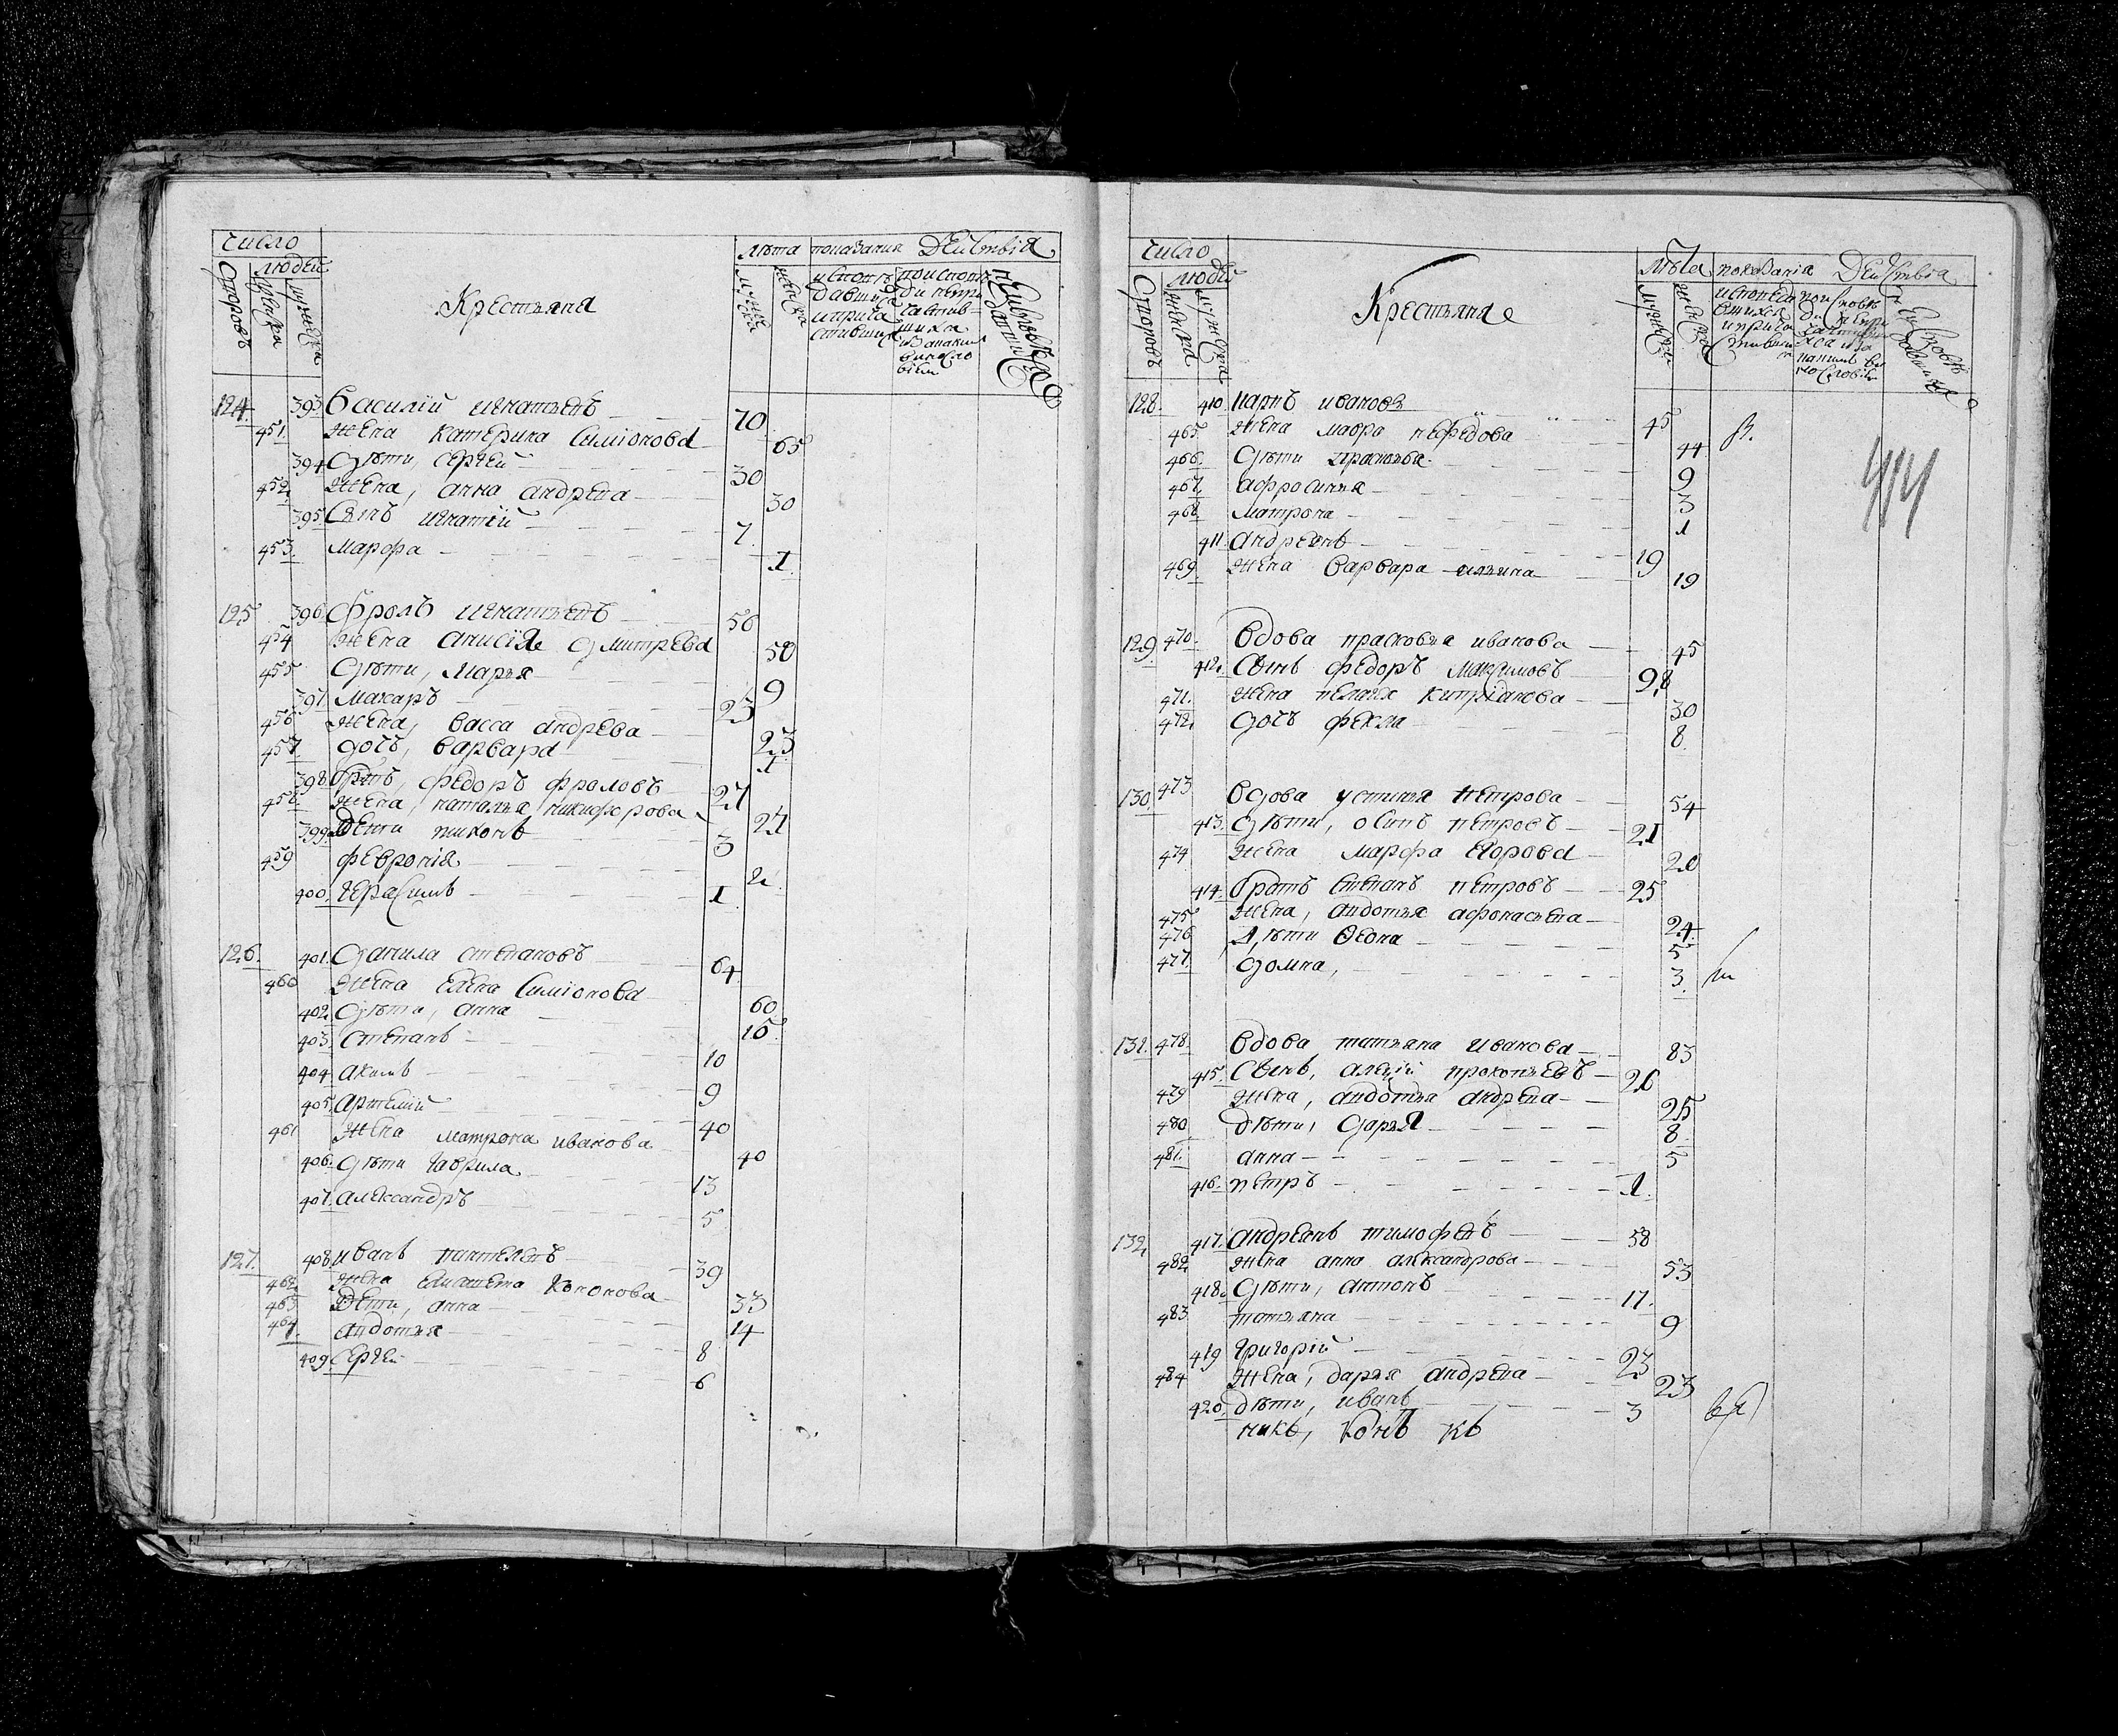 число
людей
дворовъ
женска
мужеска
Крестьяня
лѣта
показания
Действія
мужеска
женска
124. 393. Василий игнатьевъ 70
451. жена катерина Симіонова 65
394 дѣти, сергей 30
452. жена, анна андреева 30
395. Сынъ игнатей 7.
453. марфа 1.
125 396. фролъ игнатьевъ 56
454 жена анисія дмитрева 50
455 дѣти, марья 9
397 макаръ 23
456 жена, васса андрева 23
457. дочь, варвара 1
398 братъ, федоръ фроловъ 27
458 жена, наталья никифорова 27
399. Дети никонъ 3
459 феврония 2.
400. герасимъ 1.
126. 401. данила степановъ 64
460 жена елена Симіонова 60
402. дѣти, анна 15
403. степанъ 10
404 акимъ 9
405. артемий 40
461 жена матрона иванова 40
406. дѣти гаврила 13
407. александръ 5
127. 408 иванъ пантелеевъ 39
462. жена елисавета кононова 33
463 Дети, анна 14
464. авдотья 8
409 сергей 6
число
людей
дворовъ
женска
мужеска
Крестьяня
лѣта
показанія
Действія
мужеска
женска
128. 410. карпъ ивановъ 45
465. жена мавра нефедова 44
466. дѣти прасковья 9
467. афросинья 3
468. матрона 1
411. андреянъ 19
469. жена варвара ильина 19
414
129. 470. вдова прасковья иванова 45
412. Сынъ федоръ максимовъ 28
471. жена пелагея киприанова 30
472. дочь фекла 8.
130. 473 вдова устинья петрова 54
413. дѣти, осипъ петровъ 21
474 жена марфа егорова 20
414. братъ степанъ петровъ 25
475 жена, авдотья афонасьева 24.
476 дѣти Ѳеона 5
477. домна, 3.
131. 478. вдова татьяна иванова 83
415. Сынъ, алексій прокопьевъ 26
479 жена, авдотья андреева 25
480 дѣти, дарья 8.
481. анна 5
416. петръ 1.
132. 417. андреянъ тимофеевъ 58
482 жена анна александрова 53
418. дѣти, антонъ 17.
483 татьяна 9
419 григорій 23
484 жена, дарья андреева 23
420. дѣти, иванъ 3